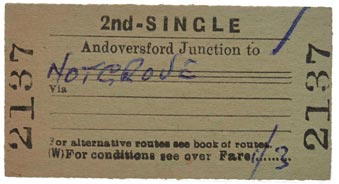 2nd-SINGLE
Andoversford Junction to
NOTGROVE
Via
For alternative routes see book of routes.
(W) For conditions see over Fare 1/3
2137
2137